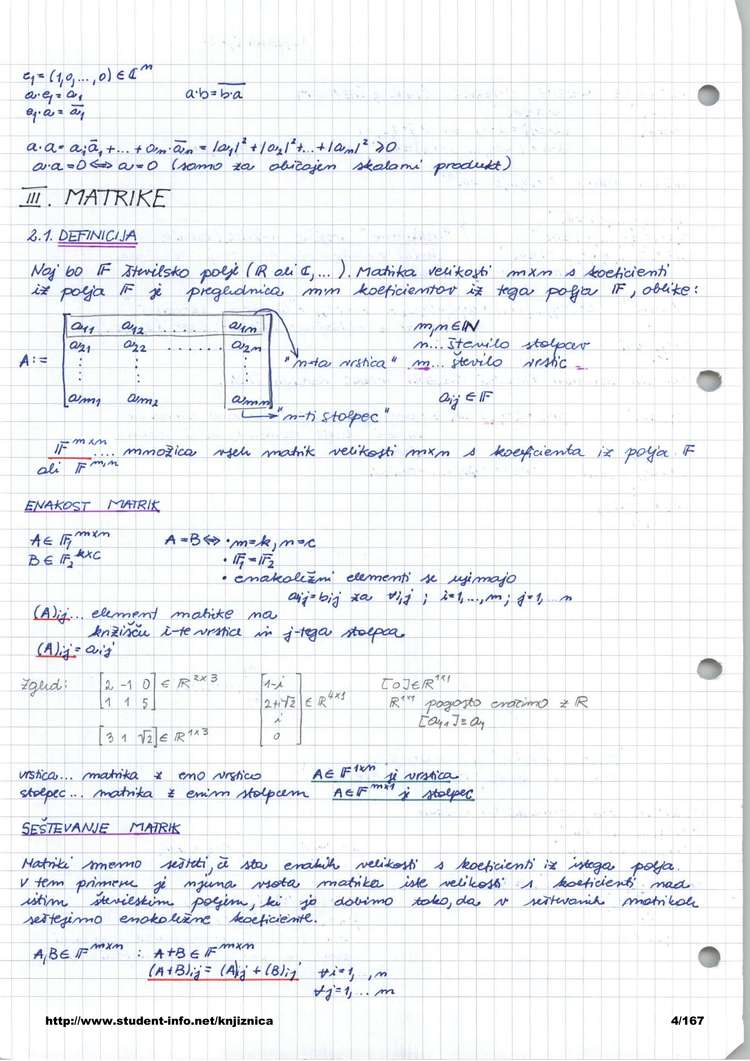 e₁ = (1,0,...,0) ∈ ℂⁿ
a·e₁ = a₁ a·b = \overline{b·a}
e₁·a = \overline{a₁}
a·a = a₁\overline{a}₁ + ... + aₙ·\overline{a}ₙ = |a₁|² + |a₂|² + ... + |aₙ|² ≥ 0
a·a = 0 ⇔ a = 0 (samo za običajen skalarni produkt)
III. MATRIKE
2.1. DEFINICIJA
Naj bo 𝔽 številsko polje (ℝ ali ℂ, ...). Matrika velikosti m×n s koeficienti
iz polja 𝔽 je preglednica mn koeficientov iz tega polja 𝔽, oblike:
a₁₁ a₁₂ ...... a₁ₙ m,n ∈ ℕ
a₂₁ a₂₂ ...... a₂ₙ n... število stolpcev
A := ⋮ ⋮ ⋮ "m-ta vrstica" m... število vrstic
aₘ₁ aₘ₂ aₘₙ aᵢⱼ ∈ 𝔽
"n-ti stolpec"
𝔽^{m×n} .... mmnožica vseh matrik velikosti m×n s koeficienta iz polja 𝔽
ali 𝔽^{m,n}
ENAKOST MATRIK
A ∈ 𝔽₁^{m×n} A = B ⇔ • m = k, n = c
B ∈ 𝔽₂^{k×c} • 𝔽₁ = 𝔽₂
• enakoležni elementi se ujimajo
aᵢⱼ = bᵢⱼ za ∀i,j ; i=1,...,m; j=1, n
(A)ᵢⱼ... element matrike na
križišču i-te vrstice in j-tega stolpca
(A)ᵢⱼ = aᵢⱼ
Zgled: [2 -1 0] ∈ ℝ^{2×3} [1-i] [0] ∈ ℝ^{1×1}
[1 1 5] [2+i√2] ∈ ℝ^{4×1} ℝ^{1×1} pogosto enačimo z ℝ
[i] [a₁₁] = a₁₁
[3 1 √2] ∈ ℝ^{1×3} [0]
vrstica... matrika z eno vrstico A ∈ 𝔽^{1×n} je vrstica
stolpec... matrika z enim stolpcem A ∈ 𝔽^{m×1} je stolpec
SEŠTEVANJE MATRIK
Matriki smemo sešteti, če sta enakih velikosti s koeficienti iz istega polja.
V tem primeru je njuna vsota matrika iste velikosti s koeficienti nad
istim številskim poljem, ki jo dobimo tako, da v seštevanih matrikah
seštejemo enakoležne koeficiente.
A,B ∈ 𝔽^{m×n} : A+B ∈ 𝔽^{m×n}
(A+B)ᵢⱼ = (A)ᵢⱼ + (B)ᵢⱼ ∀i=1, ,n
∀j=1, .. m
http://www.student-info.net/knjiznica 4/167